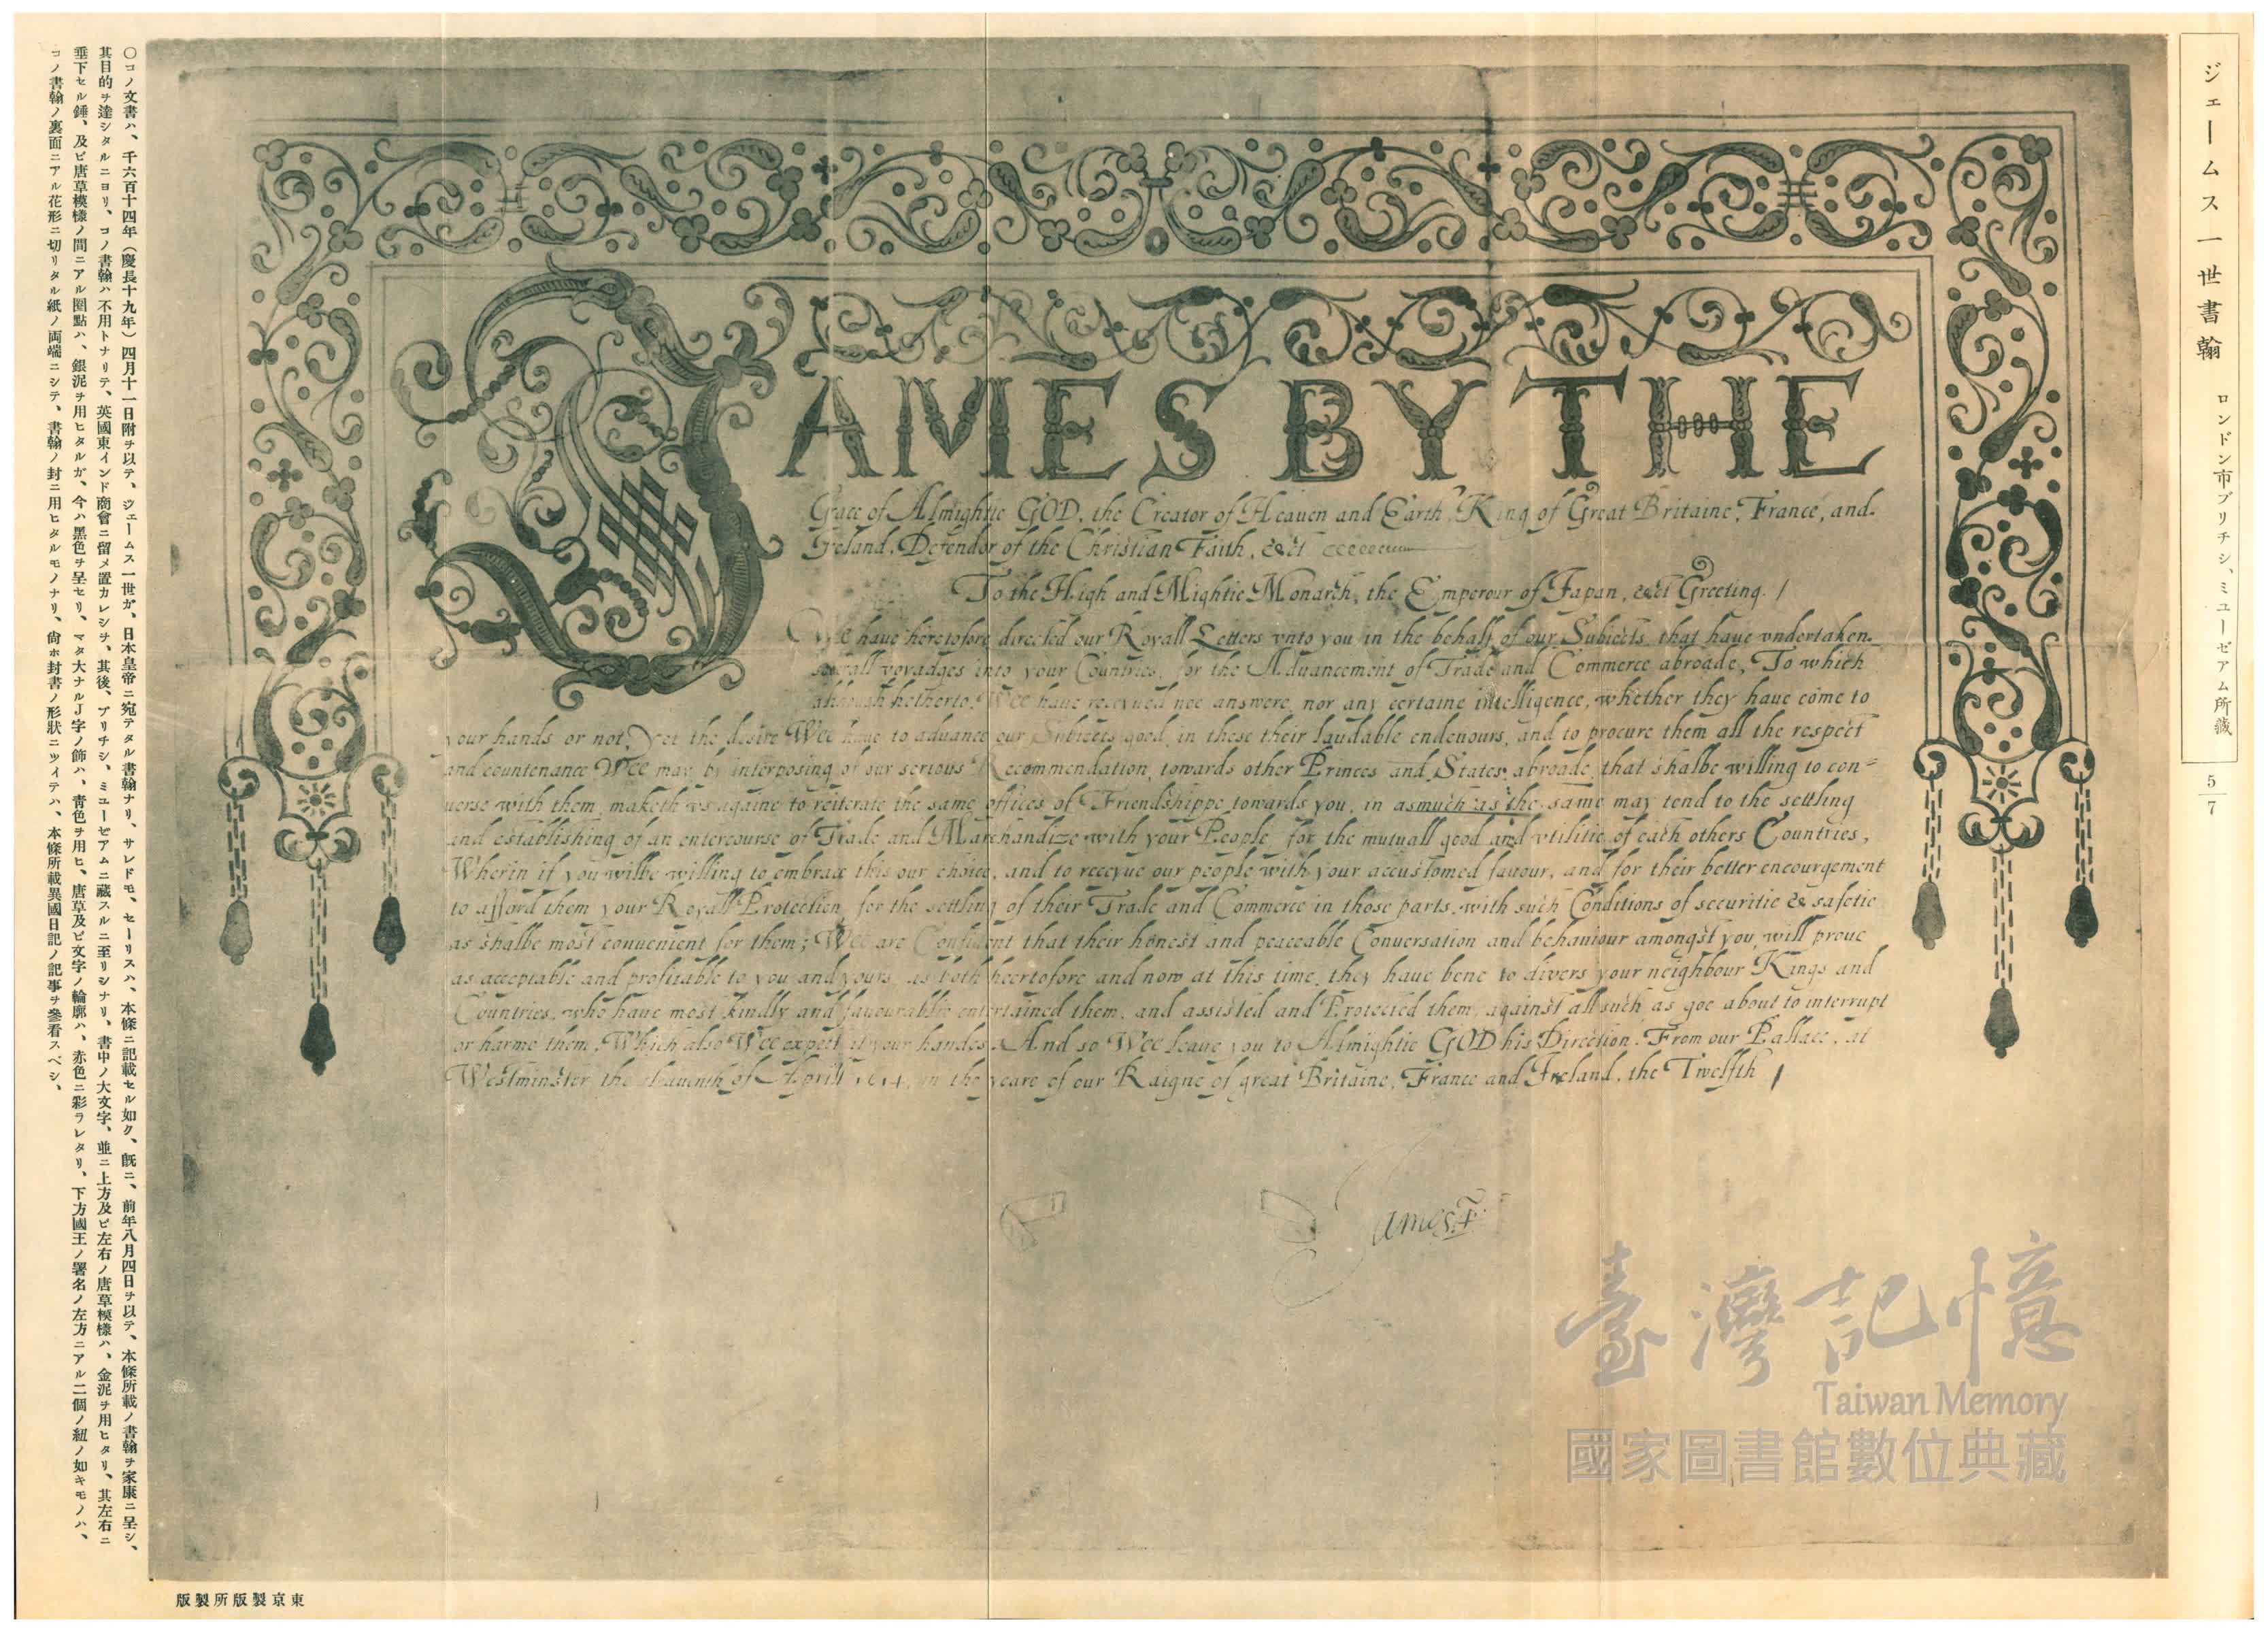 ジェームス一世書翰
ロンドン市ブリチシ、ミューゼアム所藏
5/7
JAMES BY THE
Grace of Almightie GOD, the Creator of Heauen and Earth, King of Great Britaine, France, and
Ireland, Defendor of the Christian Faith, &ct
To the High and Mightie Monarch, the Emperour of Japan, &ct Greeting. /
Wee haue heretofore directed our Royall Letters vnto you in the behalf of our Subiects, that haue vndertaken
seuerall voyadges into your Countries, for the Aduancement of Trade and Commerce abroade, To which
although hetherto, Wee haue receyued noe answere, nor any certaine intelligence, whether they haue come to
your hands or not, Yet the desire Wee haue to aduance our Subiects good, in these their laudable endeuours, and to procure them all the respect
and countenance Wee may by interposing of our serious Recommendation, towards other Princes and States abroade, that shalbe willing to con=
uerse with them, maketh vs againe to reiterate the same offices of Friendshippe towards you, in asmuch as the same may tend to the settling
and establishing of an entercourse of Trade and Marchandize with your People, for the mutuall good and vtilitie of each others Countries,
Wherin if you wilbe willing to embrace this our choice, and to receyue our people with your accustomed fauour, and for their better encourgement
to afford them your Royall Protection, for the settling of their Trade and Commerce in those parts, with such Conditions of securitie & safetie
as shalbe most conuenient for them; Wee are Confident that their honest and peaceable Conuersation and behauiour amongst you, will proue
as acceptable and profitable to you and yours, as both heertofore and now at this time, they haue bene to divers your neighbour Kings and
Countries, who haue most kindly and fauourablie entertained them, and assisted and Protected them, against all such as goe about to interrupt
or harme them, Which also Wee expect at your handes. And so Wee leaue you to Almightie GOD his Direction. From our Pallace, at
Westminster the eleauenth of Aprill 1614, in the yeare of our Raigne of great Britaine, France and Ireland, the Twelfth /
James R.
〇コノ文書ハ、千六百十四年（慶長十九年）四月十一日附ヲ以テ、ジェームス一世ガ、日本皇帝ニ宛テタル書翰ナリ、サレドモ、セーリスハ、本條ニ記載セル如ク、既ニ、前年八月四日ヲ以テ、本條所載ノ書翰ヲ家康ニ呈シ、
其目的ヲ達シタルニヨリ、コノ書翰ハ不用トナリテ、英國東インド商會ニ留メ置カレシヲ、其後、ブリチシ、ミューゼアムニ藏スルニ至リシナリ、書中ノ大文字、並ニ上方及ビ左右ノ唐草模樣ハ、金泥ヲ用ヒタリ、其左右ニ
垂下セル錘、及ビ唐草模樣ノ間ニアル圏點ハ、銀泥ヲ用ヒタルガ、今ハ黑色ヲ呈セリ、マタ大ナルJ字ノ飾ハ、靑色ヲ用ヒ、唐草及ビ文字ノ輪廓ハ、赤色ニ彩ラレタリ、下方國王ノ署名ノ左方ニアル二個ノ紐ノ如キモノハ、
コノ書翰ノ裏面ニアル花形ニ切リタル紙ノ両端ニシテ、書翰ノ封ニ用ヒタルモノナリ、尙ホ封書ノ形狀ニツイテハ、本條所載異國日記ノ記事ヲ參看スベシ、
版製所版製京東
臺灣記憶
Taiwan Memory
國家圖書館數位典藏